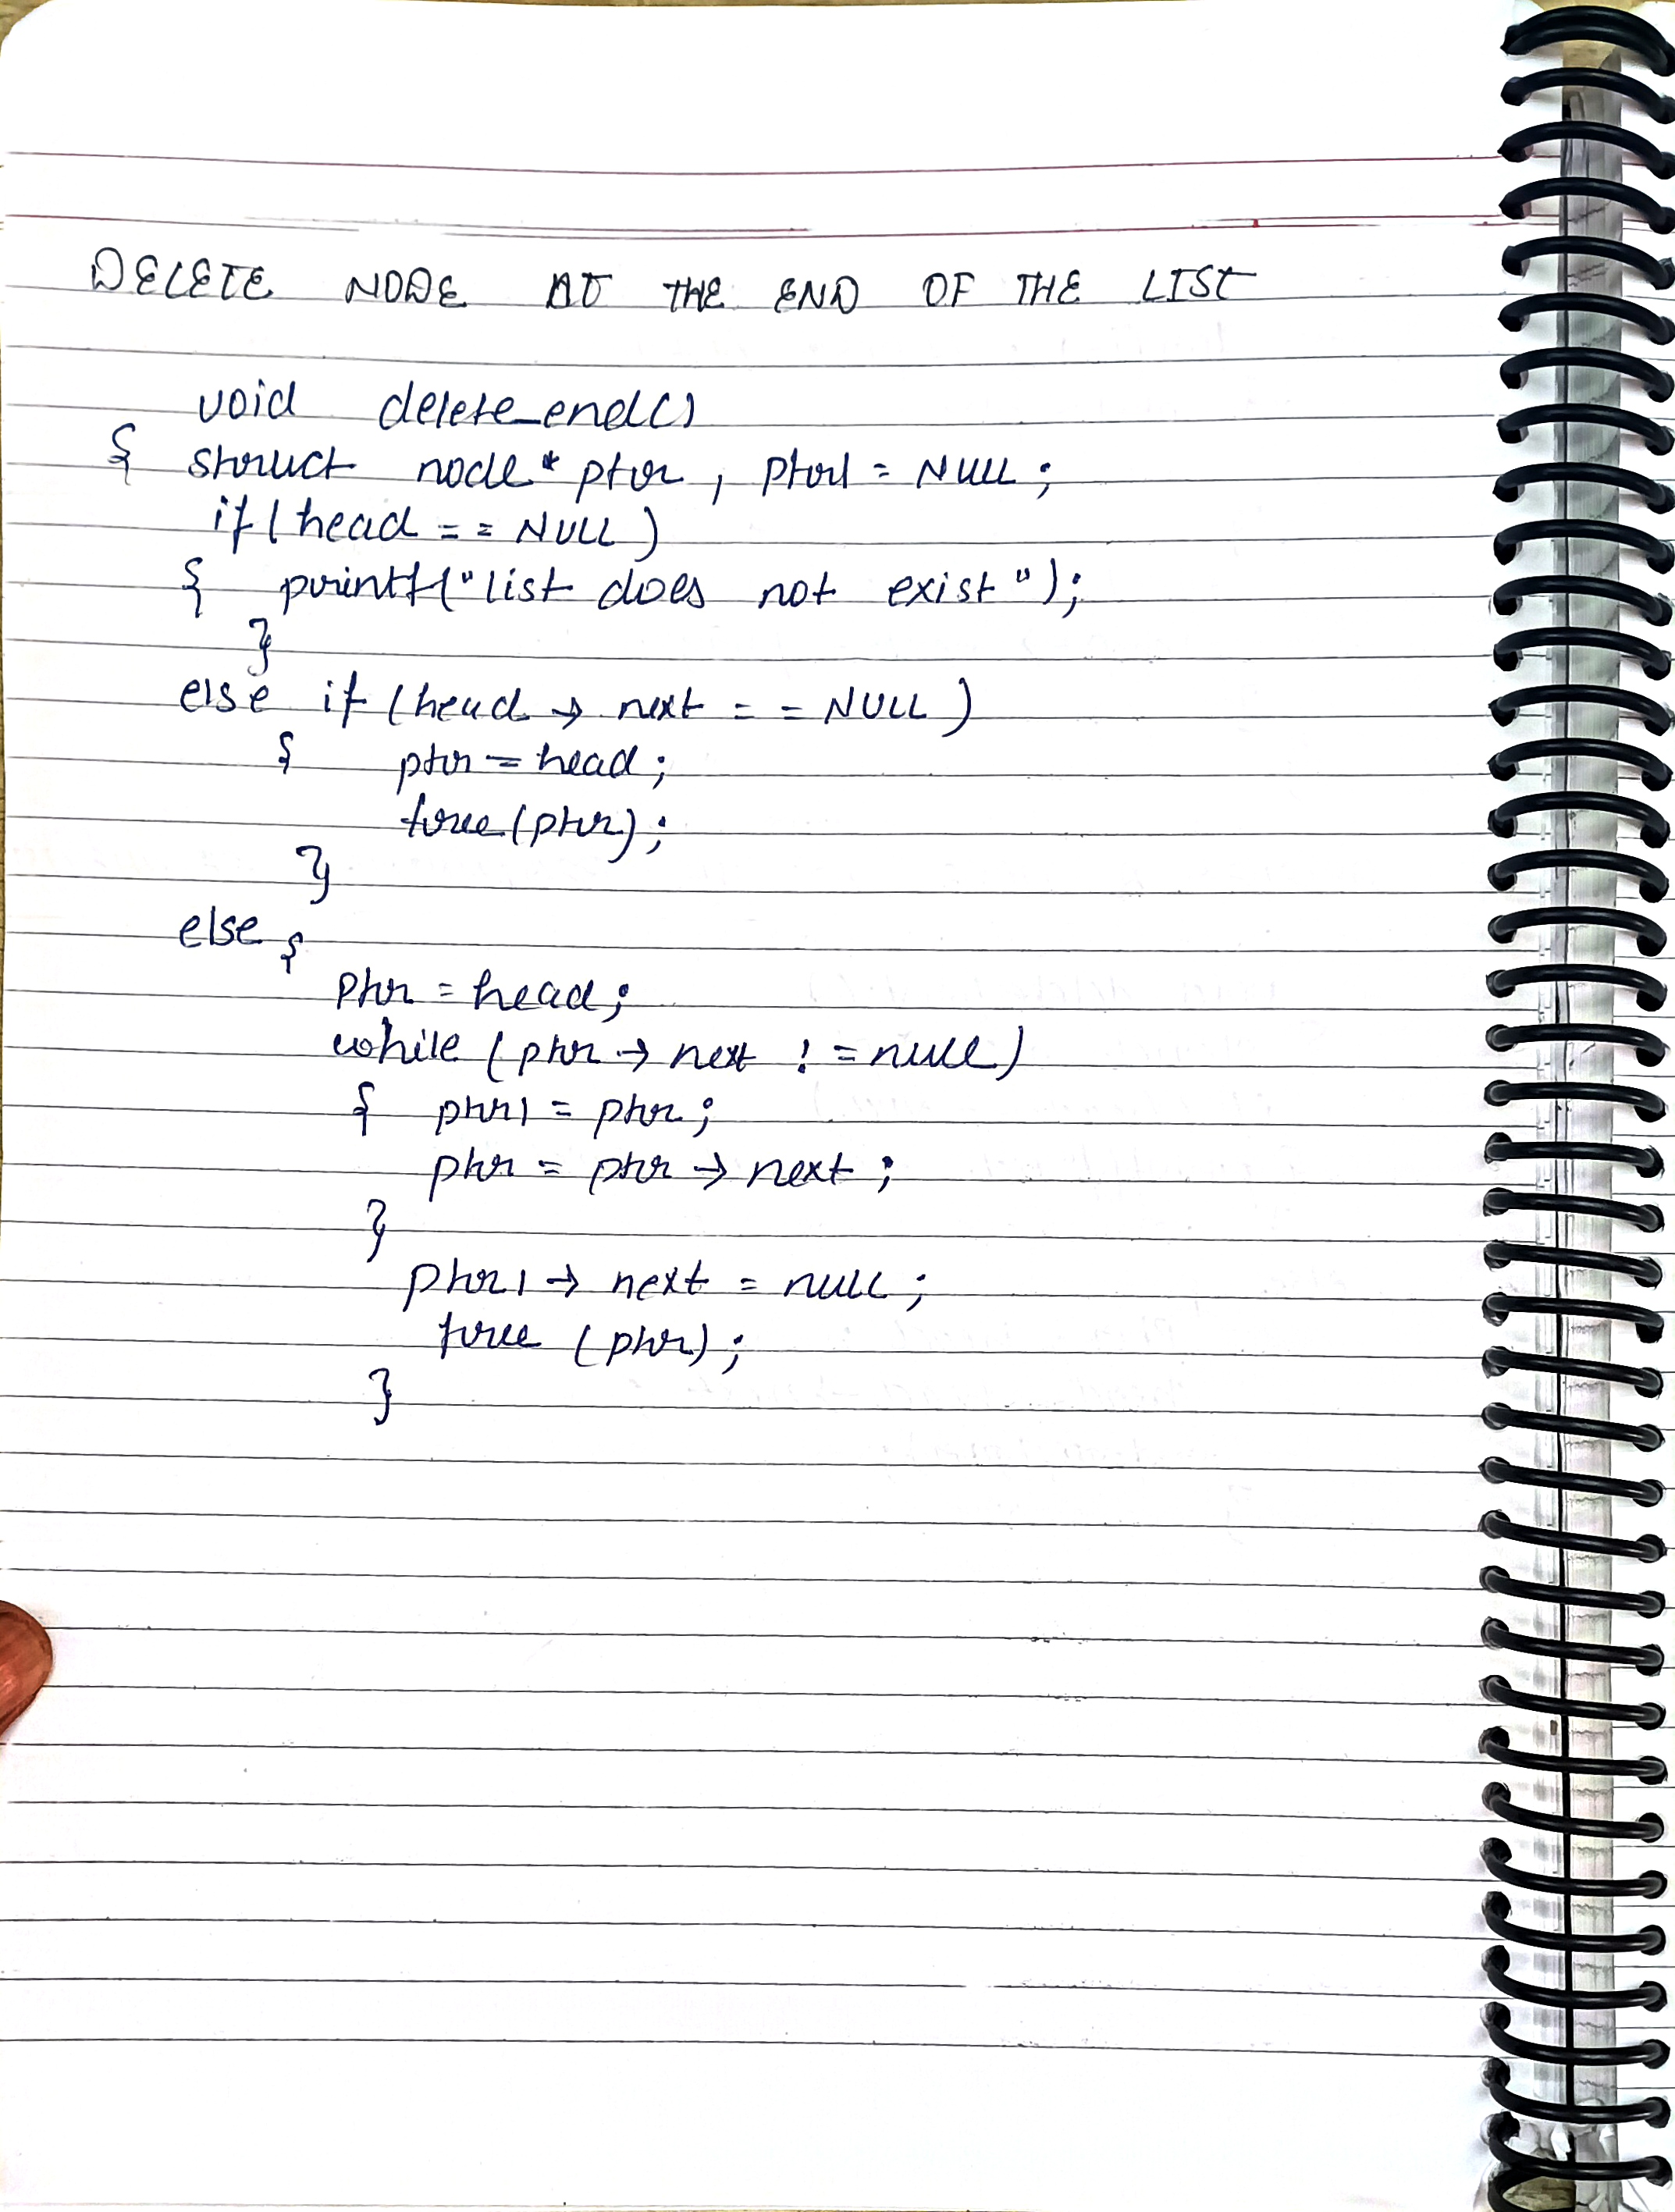 DELETE NODE AT THE END OF THE LIST
void delete_end()
{ struct node * ptr , ptr1 = NULL ;
if ( head = = NULL )
{ printf("list does not exist ");
}
else if (head → next = = NULL )
{ ptr = head ;
free (ptr) ;
}
else {
ptr = head ;
while ( ptr → next ! = null )
{ ptr1 = ptr ;
ptr = ptr → next ;
}
ptr1 → next = null ;
free (ptr) ;
}